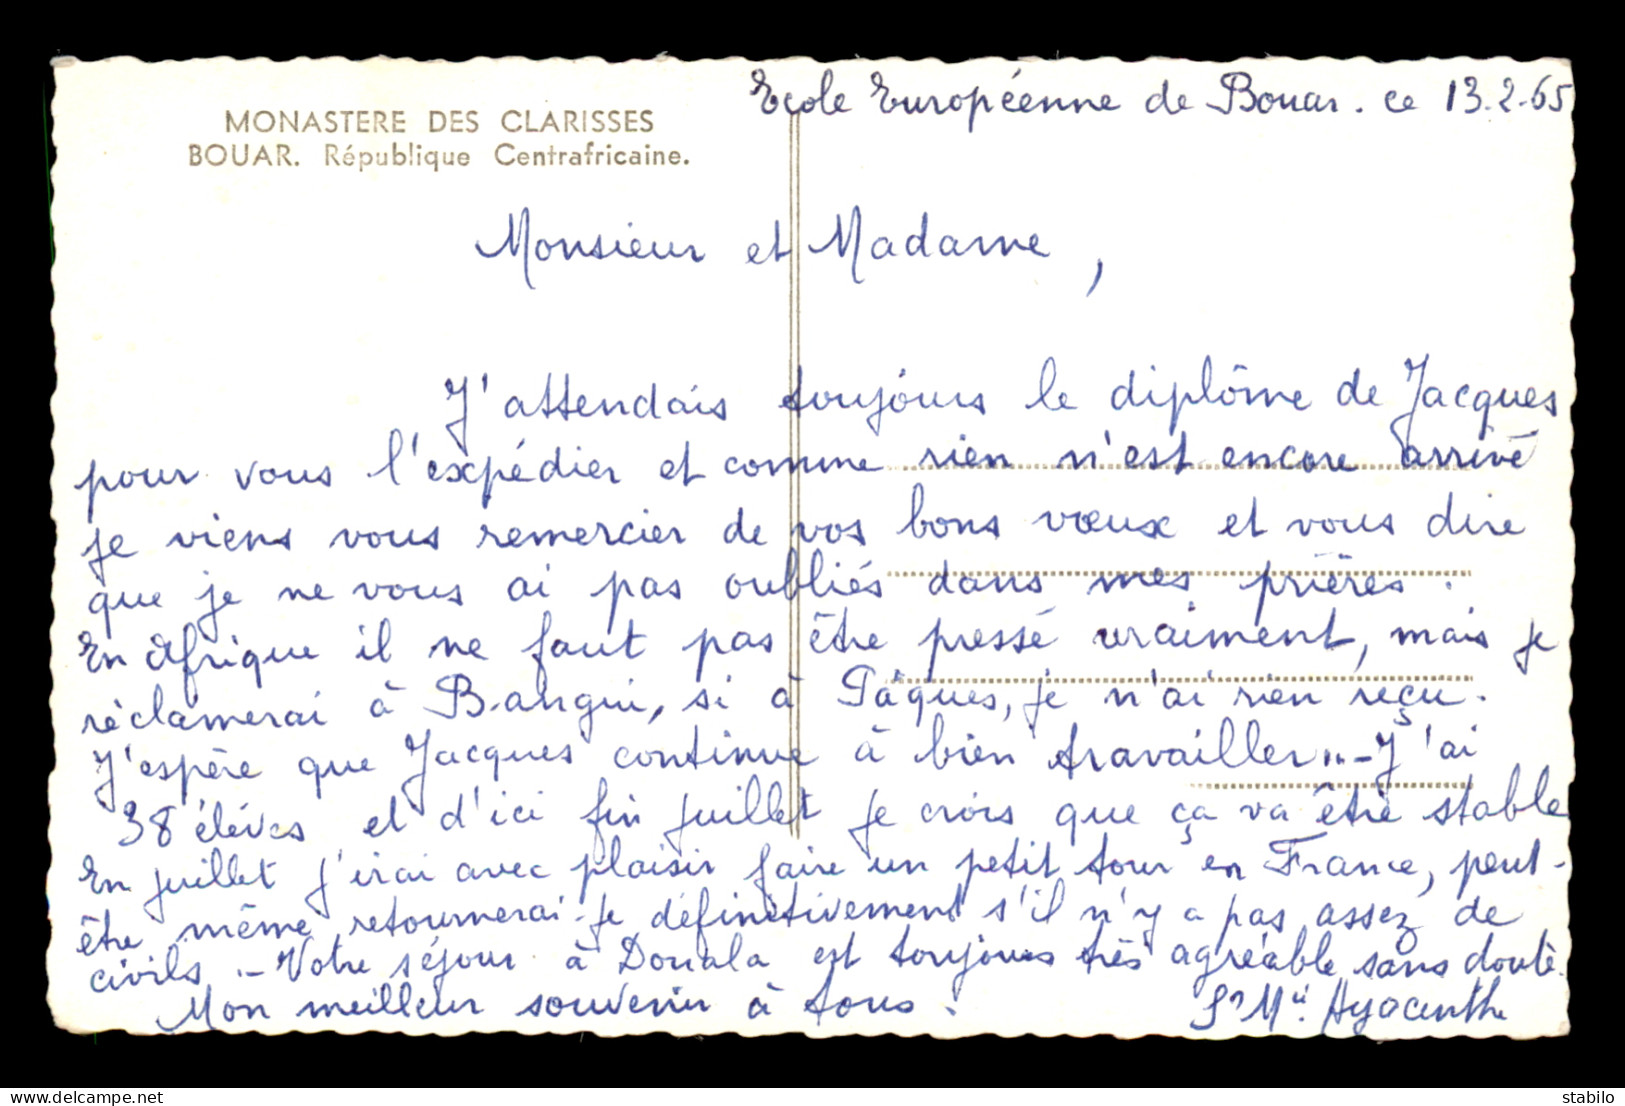 Ecole Européenne de Bouar. ce 13.2.65
MONASTERE DES CLARISSES
BOUAR. République Centrafricaine.
Monsieur et Madame,
J'attendais toujours le diplôme de Jacques
pour vous l'expédier et comme rien n'est encore arrivé
je viens vous remercier de vos bons vœux et vous dire
que je ne vous ai pas oubliés dans mes prières.
En Afrique il ne faut pas être pressé vraiment, mais je
réclamerai à Bangui, si à Pâques, je n'ai rien reçu.
J'espère que Jacques continue à bien travailler... - J'ai
38 élèves et d'ici fin juillet je crois que ça va être stable
En juillet j'irai avec plaisir faire un petit tour en France, peut-
être même retournerai-je définitivement s'il n'y a pas assez de
civils. - Votre séjour à Douala est toujours très agréable sans doute.
Mon meilleur souvenir à tous.
Sr Mie Hyacinthe
delcampe.net
stabilo